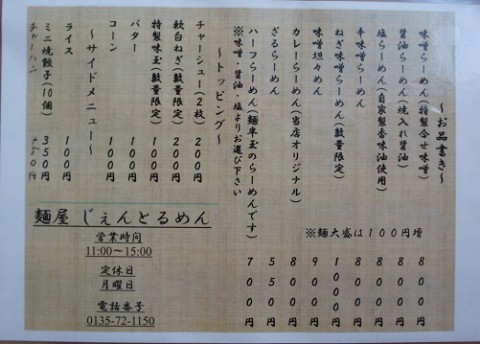 ～お品書き～
味噌らーめん(特製合せ味噌) 800円
醤油らーめん(焼入れ醤油) 800円
塩らーめん(自家製香味油使用) 800円
辛味噌らーめん 円
ねぎ味噌らーめん(数量限定) 1000円
味噌坦々めん 円
カレーらーめん(当店オリジナル) 円
ざるらーめん 円
ハーフらーめん(麺半玉のらーめんです) 円
※味噌・醤油・塩よりお選び下さい
※麺大盛は100円増
～トッピング～
チャーシュー(2枚) 200円
軟白ねぎ(数量限定) 200円
特製味玉(数量限定) 100円
バター 100円
コーン 100円
～サイドメニュー～
ライス 100円
ミニ焼餃子(10個) 350円
チャーハン 円
麺屋 じぇんとるめん
営業時間
11:00～15:00
定休日
月曜日
電話番号
0135-72-1150